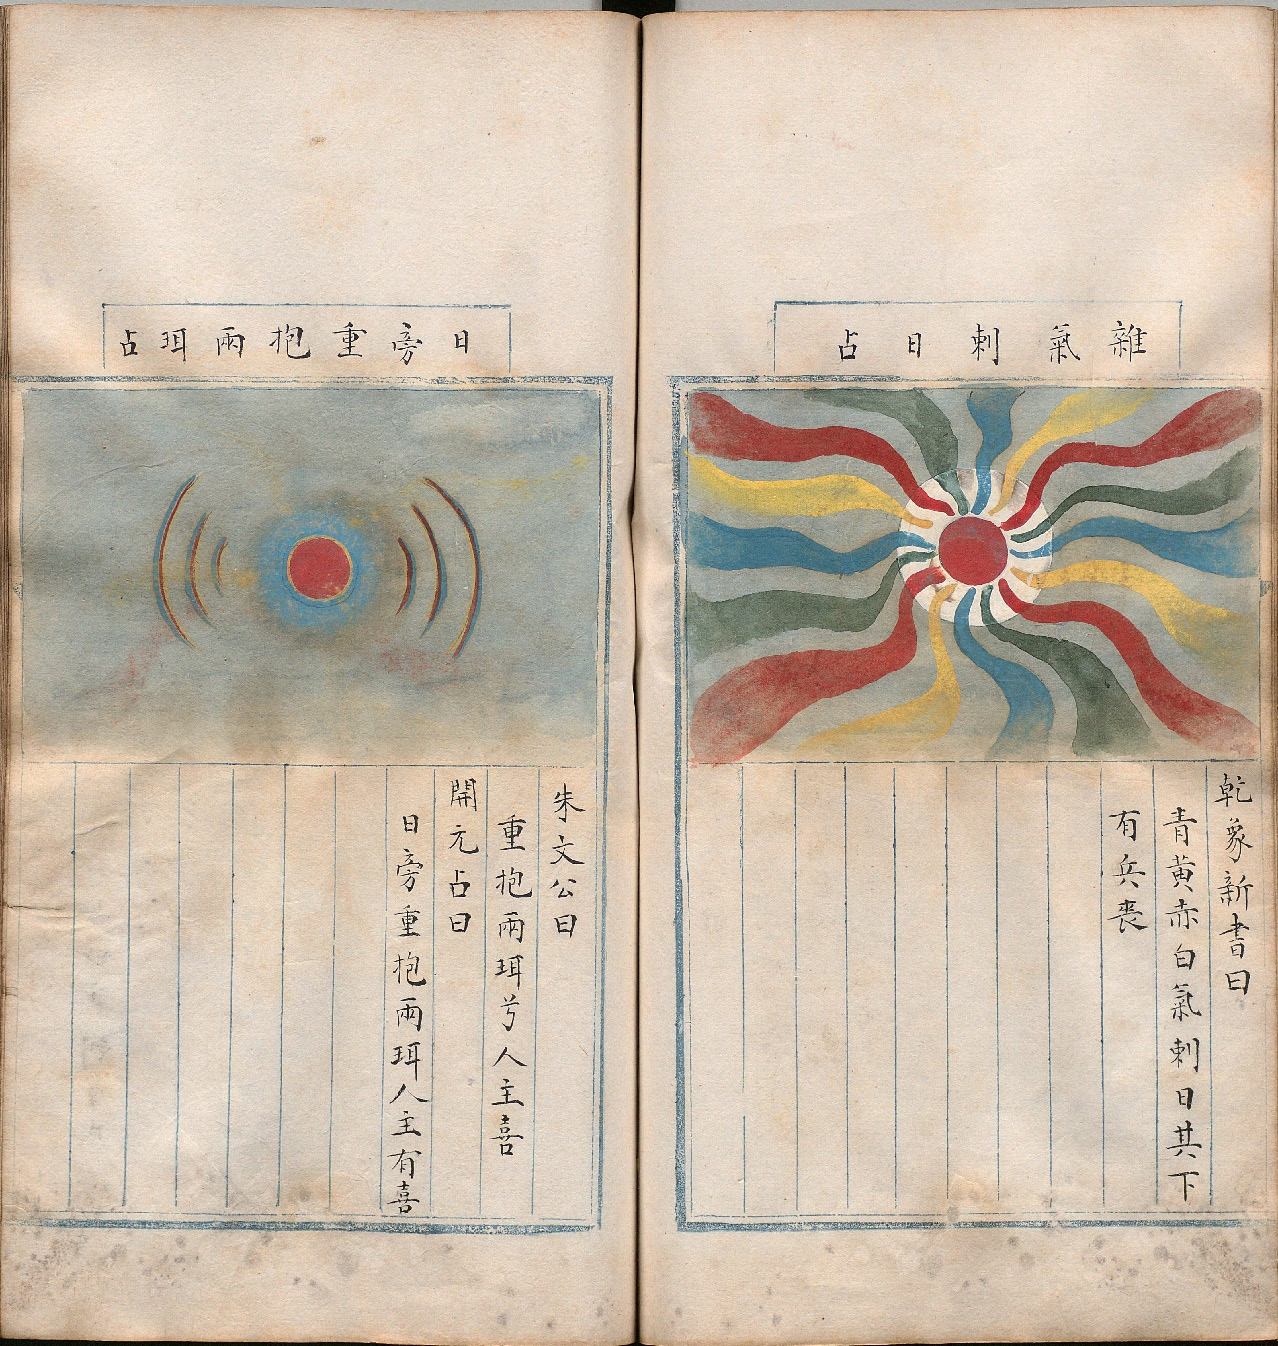 雜氣刺日占
乾象新書曰
青黃赤白氣刺日其下
有兵喪
日旁重抱兩珥占
朱文公曰
重抱兩珥兮人主喜
開元占曰
日旁重抱兩珥人主有喜